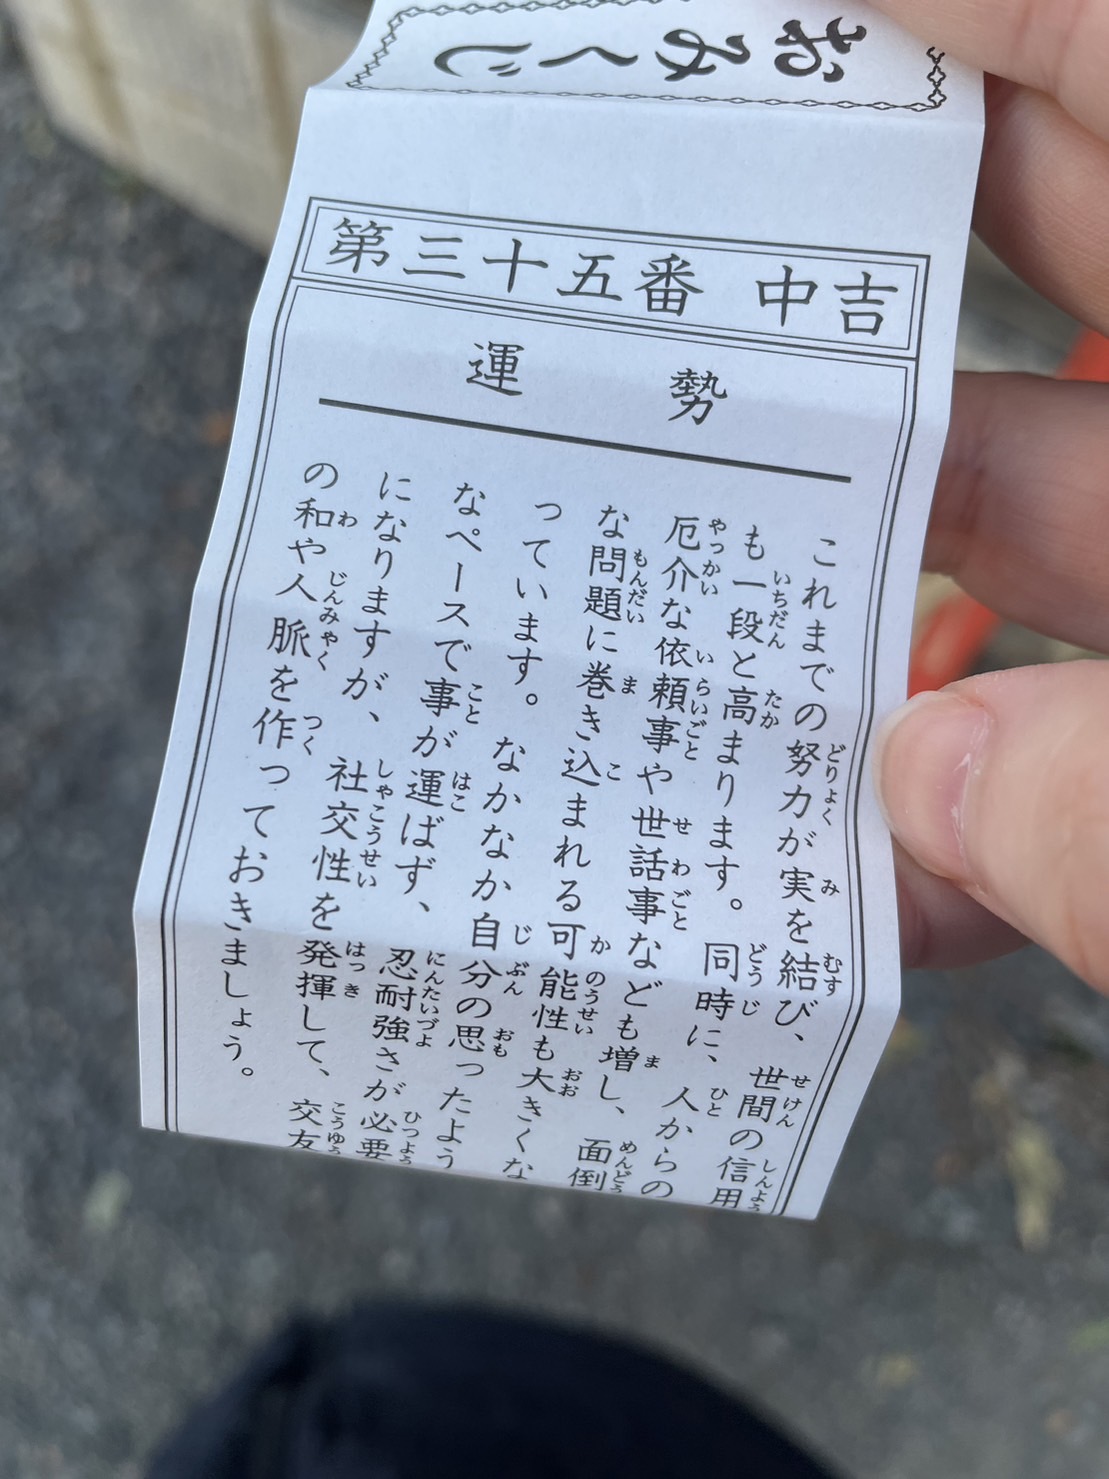 おみくじ
第三十五番 中吉
運勢
これまでの努力が実を結び、世間の信用
も一段と高まります。同時に、人からの
厄介な依頼事や世話事なども増し、面倒
な問題に巻き込まれる可能性も大きくな
っています。なかなか自分の思ったよう
なペースで事が運ばず、忍耐強さが必要
になりますが、社交性を発揮して、交友
の和や人脈を作っておきましょう。